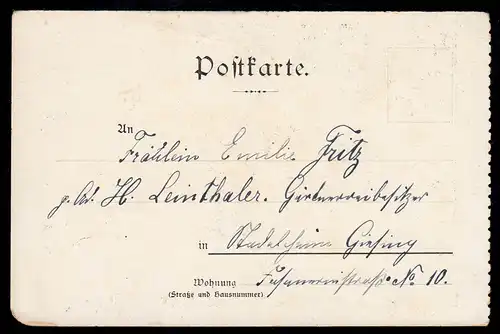 Postkarte.
An
Fräulein Emilie Fritz
p. Ad. H. Leinthaler. Gärtnereibesitzer
in Stadelheim Giesing
Wohnung No 10.
(Straße und Hausnummer)